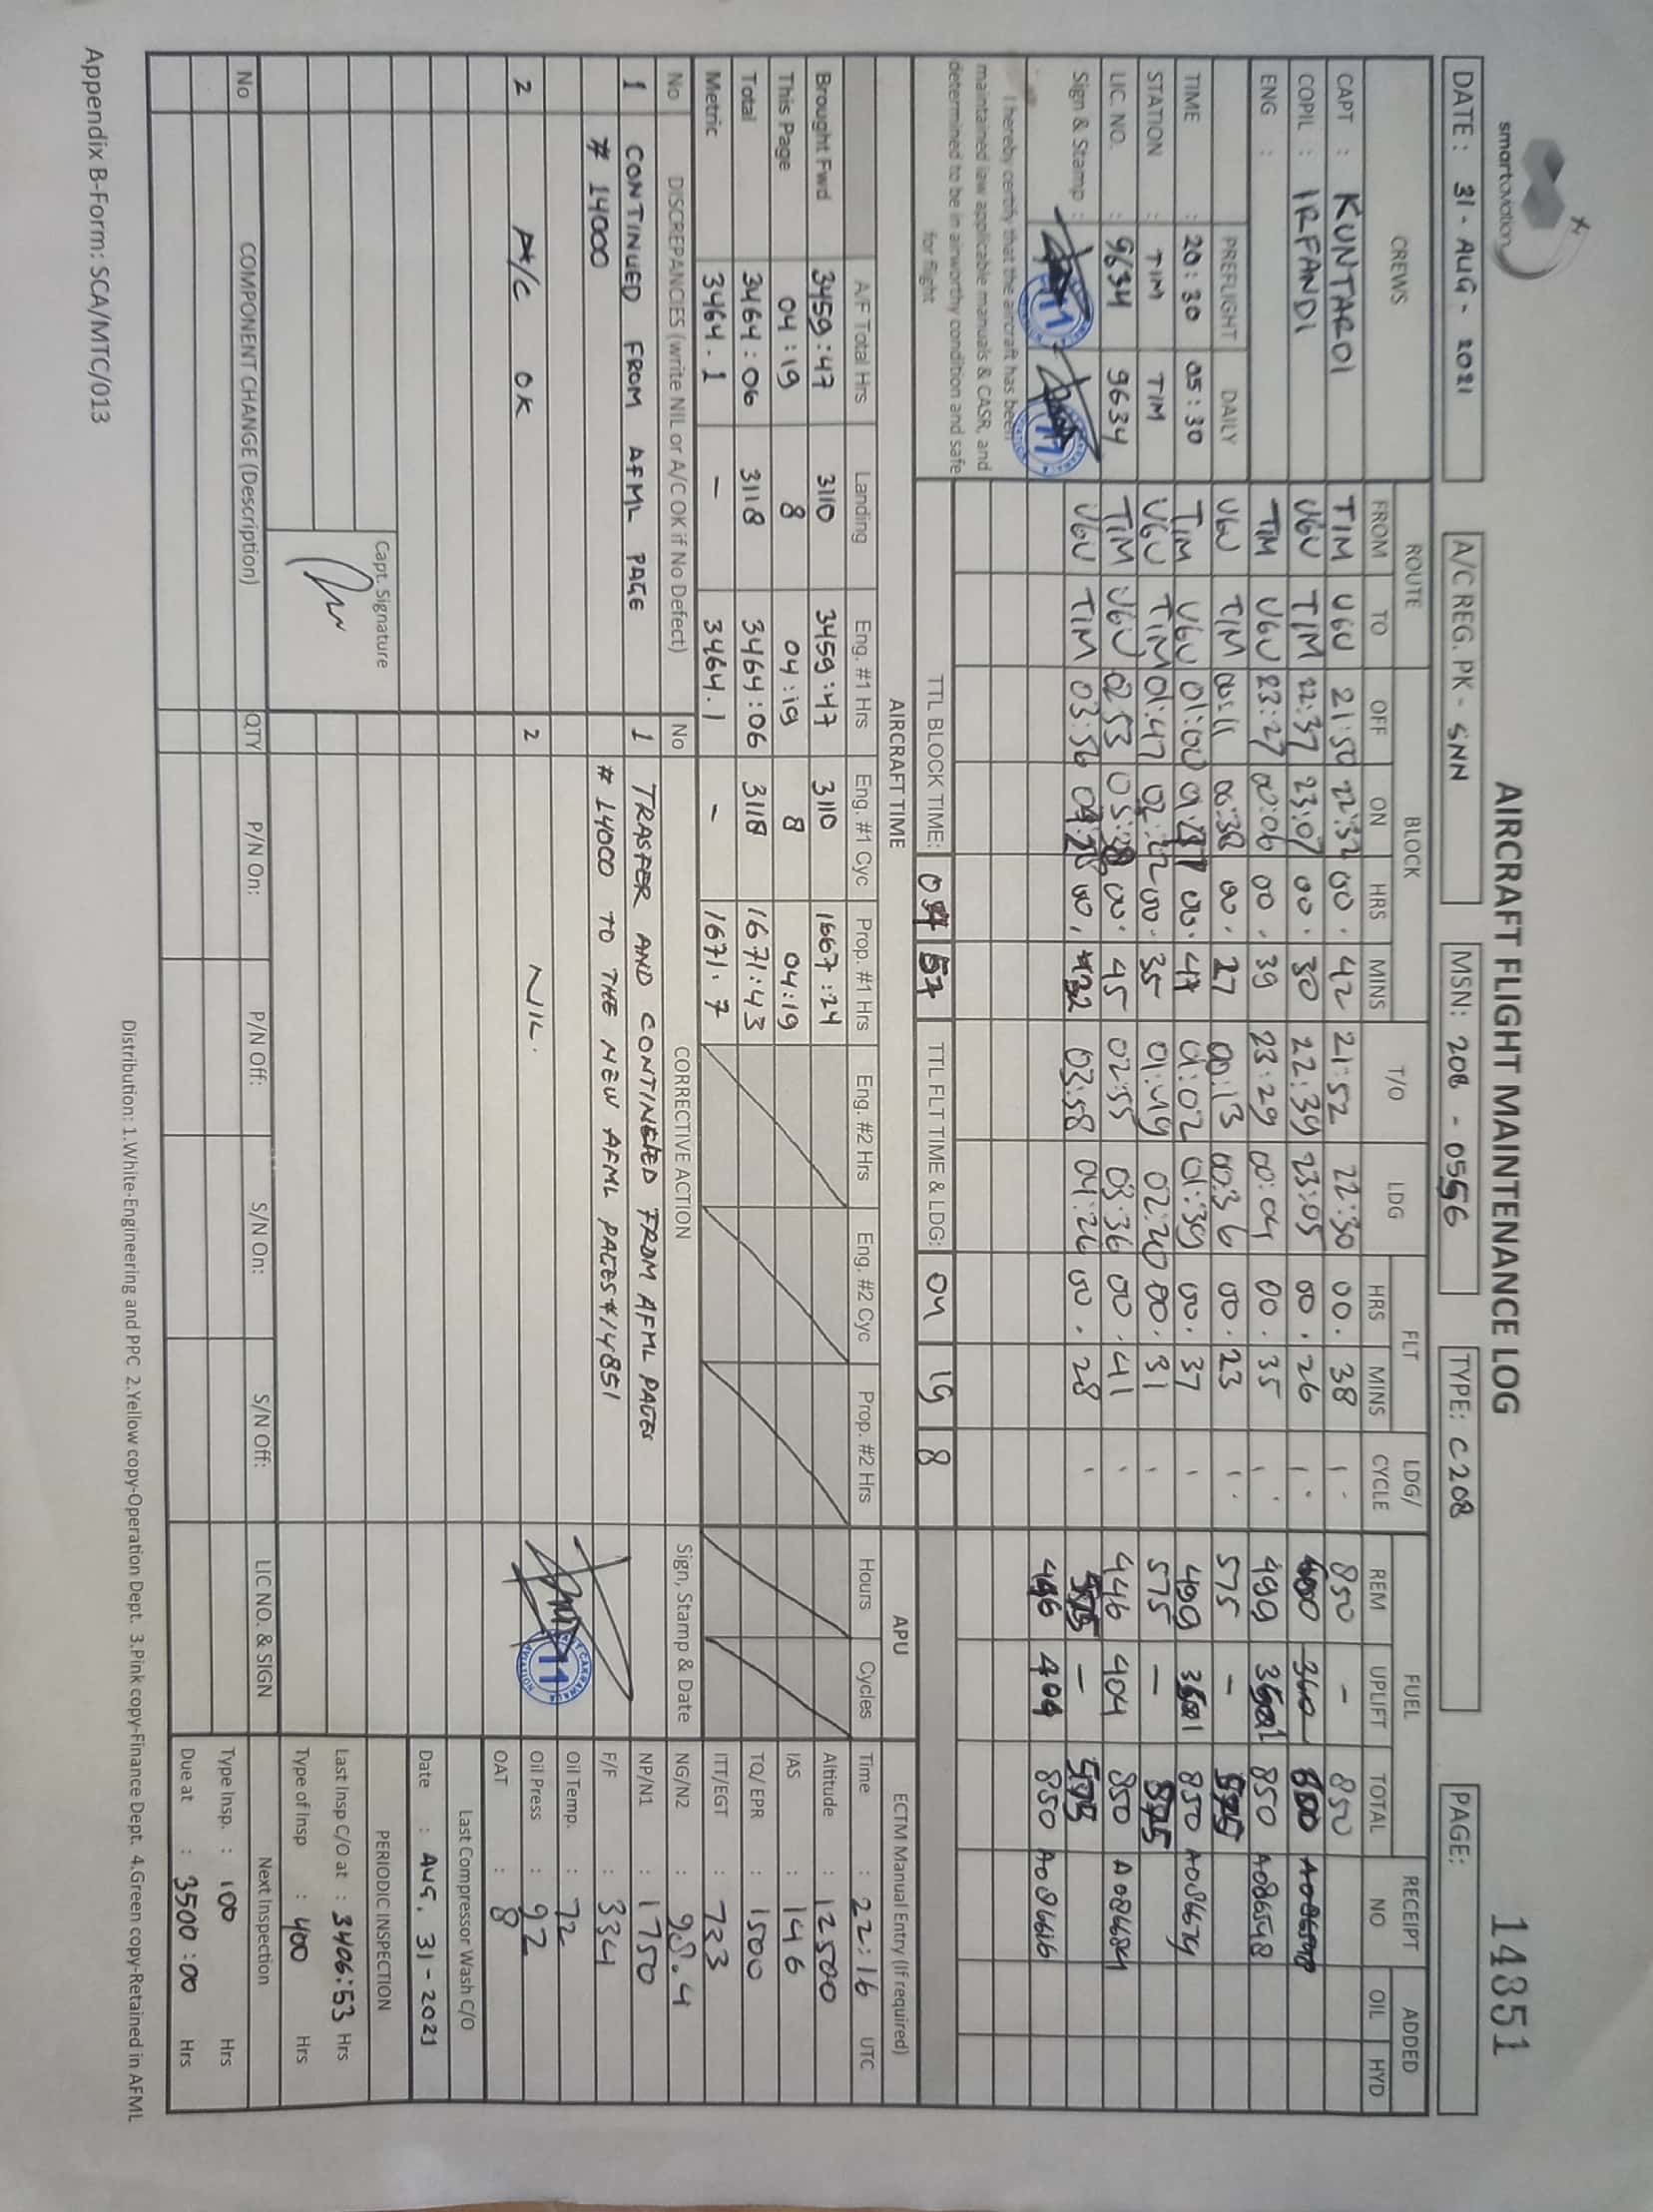 smartaviation
AIRCRAFT FLIGHT MAINTENANCE LOG
14851
DATE : 31 - AUG - 2021 A/C REG. PK - SNN MSN: 208 - 0556 TYPE: C208 PAGE:
CREWS ROUTE BLOCK T/O LDG FLT LDG/ CYCLE FUEL RECEIPT NO ADDED
FROM TO OFF ON HRS MINS HRS MINS REM UPLIFT TOTAL OIL HYD
CAPT : KUNTARDI TIM UGU 21:50 22:32 00. 42 21:52 22:30 00. 38 1 850 - 850
COPIL : IRFANDI UGU TIM 22:37 23:07 00. 30 22:39 23:05 00. 26 1
ENG : TIM UGU 23:27 00:06 00. 39 23:29 00:04 00. 35 1 499 850
PREFLIGHT DAILY UGU TIM 00:11 00:38 00. 27 00:13 00:36 00. 23 1 575 -
TIME : 20:30 05:30 TIM UGU 01:00 00. 01:02 01:39 00. 37 1 850
STATION : TIM TIM UGU TIM 01:47 02:22 00. 35 01:49 02:20 00. 31 1 575 -
LIC. NO. : 9634 9634 TIM UGU 02:53 00. 45 02:55 03:36 00. 41 1 446 404 850 A08684
Sign & Stamp : UGU TIM 03:56 00. 03:58 04:26 00. 28 1 -
404 850 A08616
I hereby certify that the aircraft has been
maintained law applicable manuals & CASR, and
determined to be in airworthy condition and safe
for flight
TTL BLOCK TIME: TTL FLT TIME & LDG: 04 19 8
AIRCRAFT TIME APU ECTM Manual Entry (If required)
A/F Total Hrs Landing Eng. #1 Hrs Eng. #1 Cyc Prop. #1 Hrs Eng. #2 Hrs Eng. #2 Cyc Prop. #2 Hrs Hours Cycles Time : 22:16 UTC
Brought Fwd 3459:47 3110 3459:47 3110 1667:24 Altitude : 12500
This Page 04:19 8 04:19 8 04:19 IAS : 146
Total 3464:06 3118 3464:06 3118 1671:43 TQ/ EPR : 1500
Metric 3464.1 - 3464.1 - 1671.7 ITT/EGT : 733
No DISCREPANCIES (write NIL or A/C OK if No Defect) No CORRECTIVE ACTION Sign, Stamp & Date NG/N2 : 98.4
1 CONTINUED FROM AFML PAGE 1 TRASFER AND CONTINUED FROM AFML PAGES NP/N1 : 1750
# 14000 # 14000 TO THE NEW AFML PAGES # 14851 F/F : 334
Oil Temp. : 72
2 A/C OK 2 NIL. Oil Press : 92
OAT : 8
Last Compressor Wash C/O
Date : AUG. 31 - 2021
Capt. Signature PERIODIC INSPECTION
Last Insp C/O at : 3406:53 Hrs
Type of Insp : 400 Hrs
No COMPONENT CHANGE (Description) QTY P/N On: P/N Off: S/N On: S/N Off: LIC NO. & SIGN Next Inspection
Type Insp. : 100 Hrs
Due at : 3500:00 Hrs
Distribution: 1.White-Engineering and PPC 2.Yellow copy-Operation Dept. 3.Pink copy-Finance Dept. 4.Green copy-Retained in AFML
Appendix B-Form: SCA/MTC/013